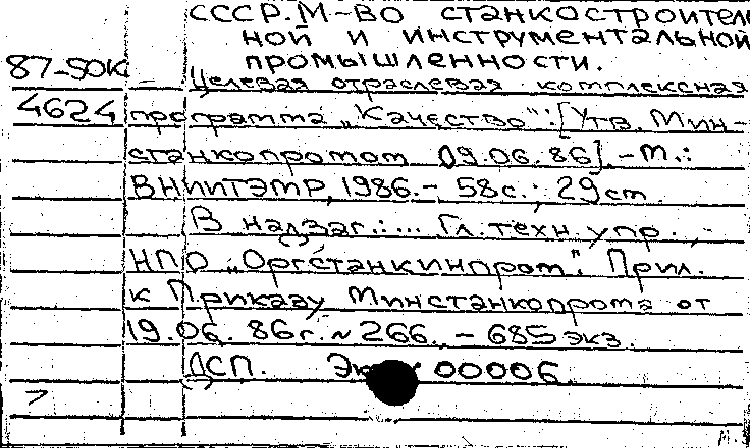 СССР. М-ВО СТАНКОСТРОИТЕЛЬ
НОЙ И ИНСТРУМЕНТАЛЬНОЙ
ПРОМЫШЛЕННОСТИ.
87-50К
Целевая отраслевая комплексная
4624 программа „Качество": [Утв. Мин-
станкопромом 09.06.86]. -М.:
ВНИИТЭМР, 1986. - 58с.; 29см.
В надзаг.:... Гл. техн. упр.,
НПО „Оргстанкинпром". Прил.
к Приказу Минстанкопрома от
19.06.86г. N 266. - 685 экз.
ДСП. 00006
7